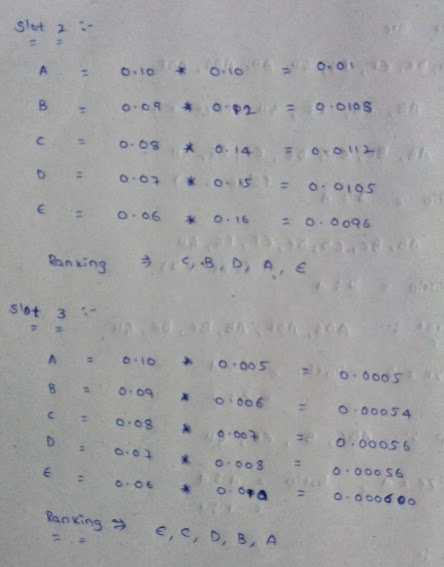 Slot 2 :-
= =
A = 0.10 * 0.10 = 0.01
B = 0.09 * 0.12 = 0.0108
C = 0.08 * 0.14 = 0.0112
D = 0.07 * 0.15 = 0.0105
E = 0.06 * 0.16 = 0.0096
Ranking ⇒ C, B, D, A, E
Slot 3 :-
= =
A = 0.10 * 0.005 = 0.0005
B = 0.09 * 0.006 = 0.00054
C = 0.08 * 0.007 = 0.00056
D = 0.07 * 0.008 = 0.00056
E = 0.06 * 0.010 = 0.000600
Ranking ⇒ E, C, D, B, A
= =